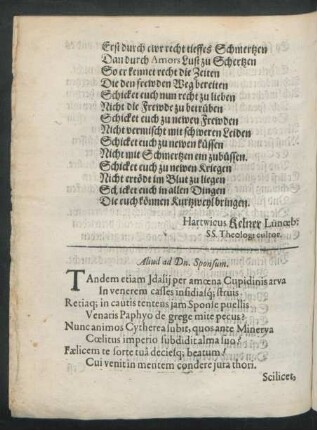 Erst durch ewr recht tieffes Schmertzen
Dan durch Amors Lust zu Schertzen
So erkennet recht die Zeiten
Die den frewden Weg bereiten
Schicket euch nun recht zu lieben
Nicht die Frewde zu betrüben
Schicket euch zu newen Frewden
Nicht vermischt mit schweren Leiden
Schicket euch zu newen küssen
Nicht mit Schmertzen ein zubüssen.
Schicket euch zu newen Kriegen
Nicht ertödt im Blut zu liegen
Schicket euch in allen Dingen
Die euch können Kurtzweyl bringen.
Hartwicus Kelner Lünœb:
SS. Theolog: cultor.
Aliud ad Dn. Sponsum.
TAndem etiam Jdalij per amœna Cupidinis arva
In venerem casses insidiasq; struis
Retiaq; in cautis tenteus jam Sponse puellis
Venaris Paphyo de grege mite pecus?
Nunc animos Cytherea subit, quos ante Minerva
Cœlitus imperio subdidit alma suo?
Fœlicem te sorte tuâ deciesq; beatum!
Cui venit in mentem condere jura thori.
Scilicet,